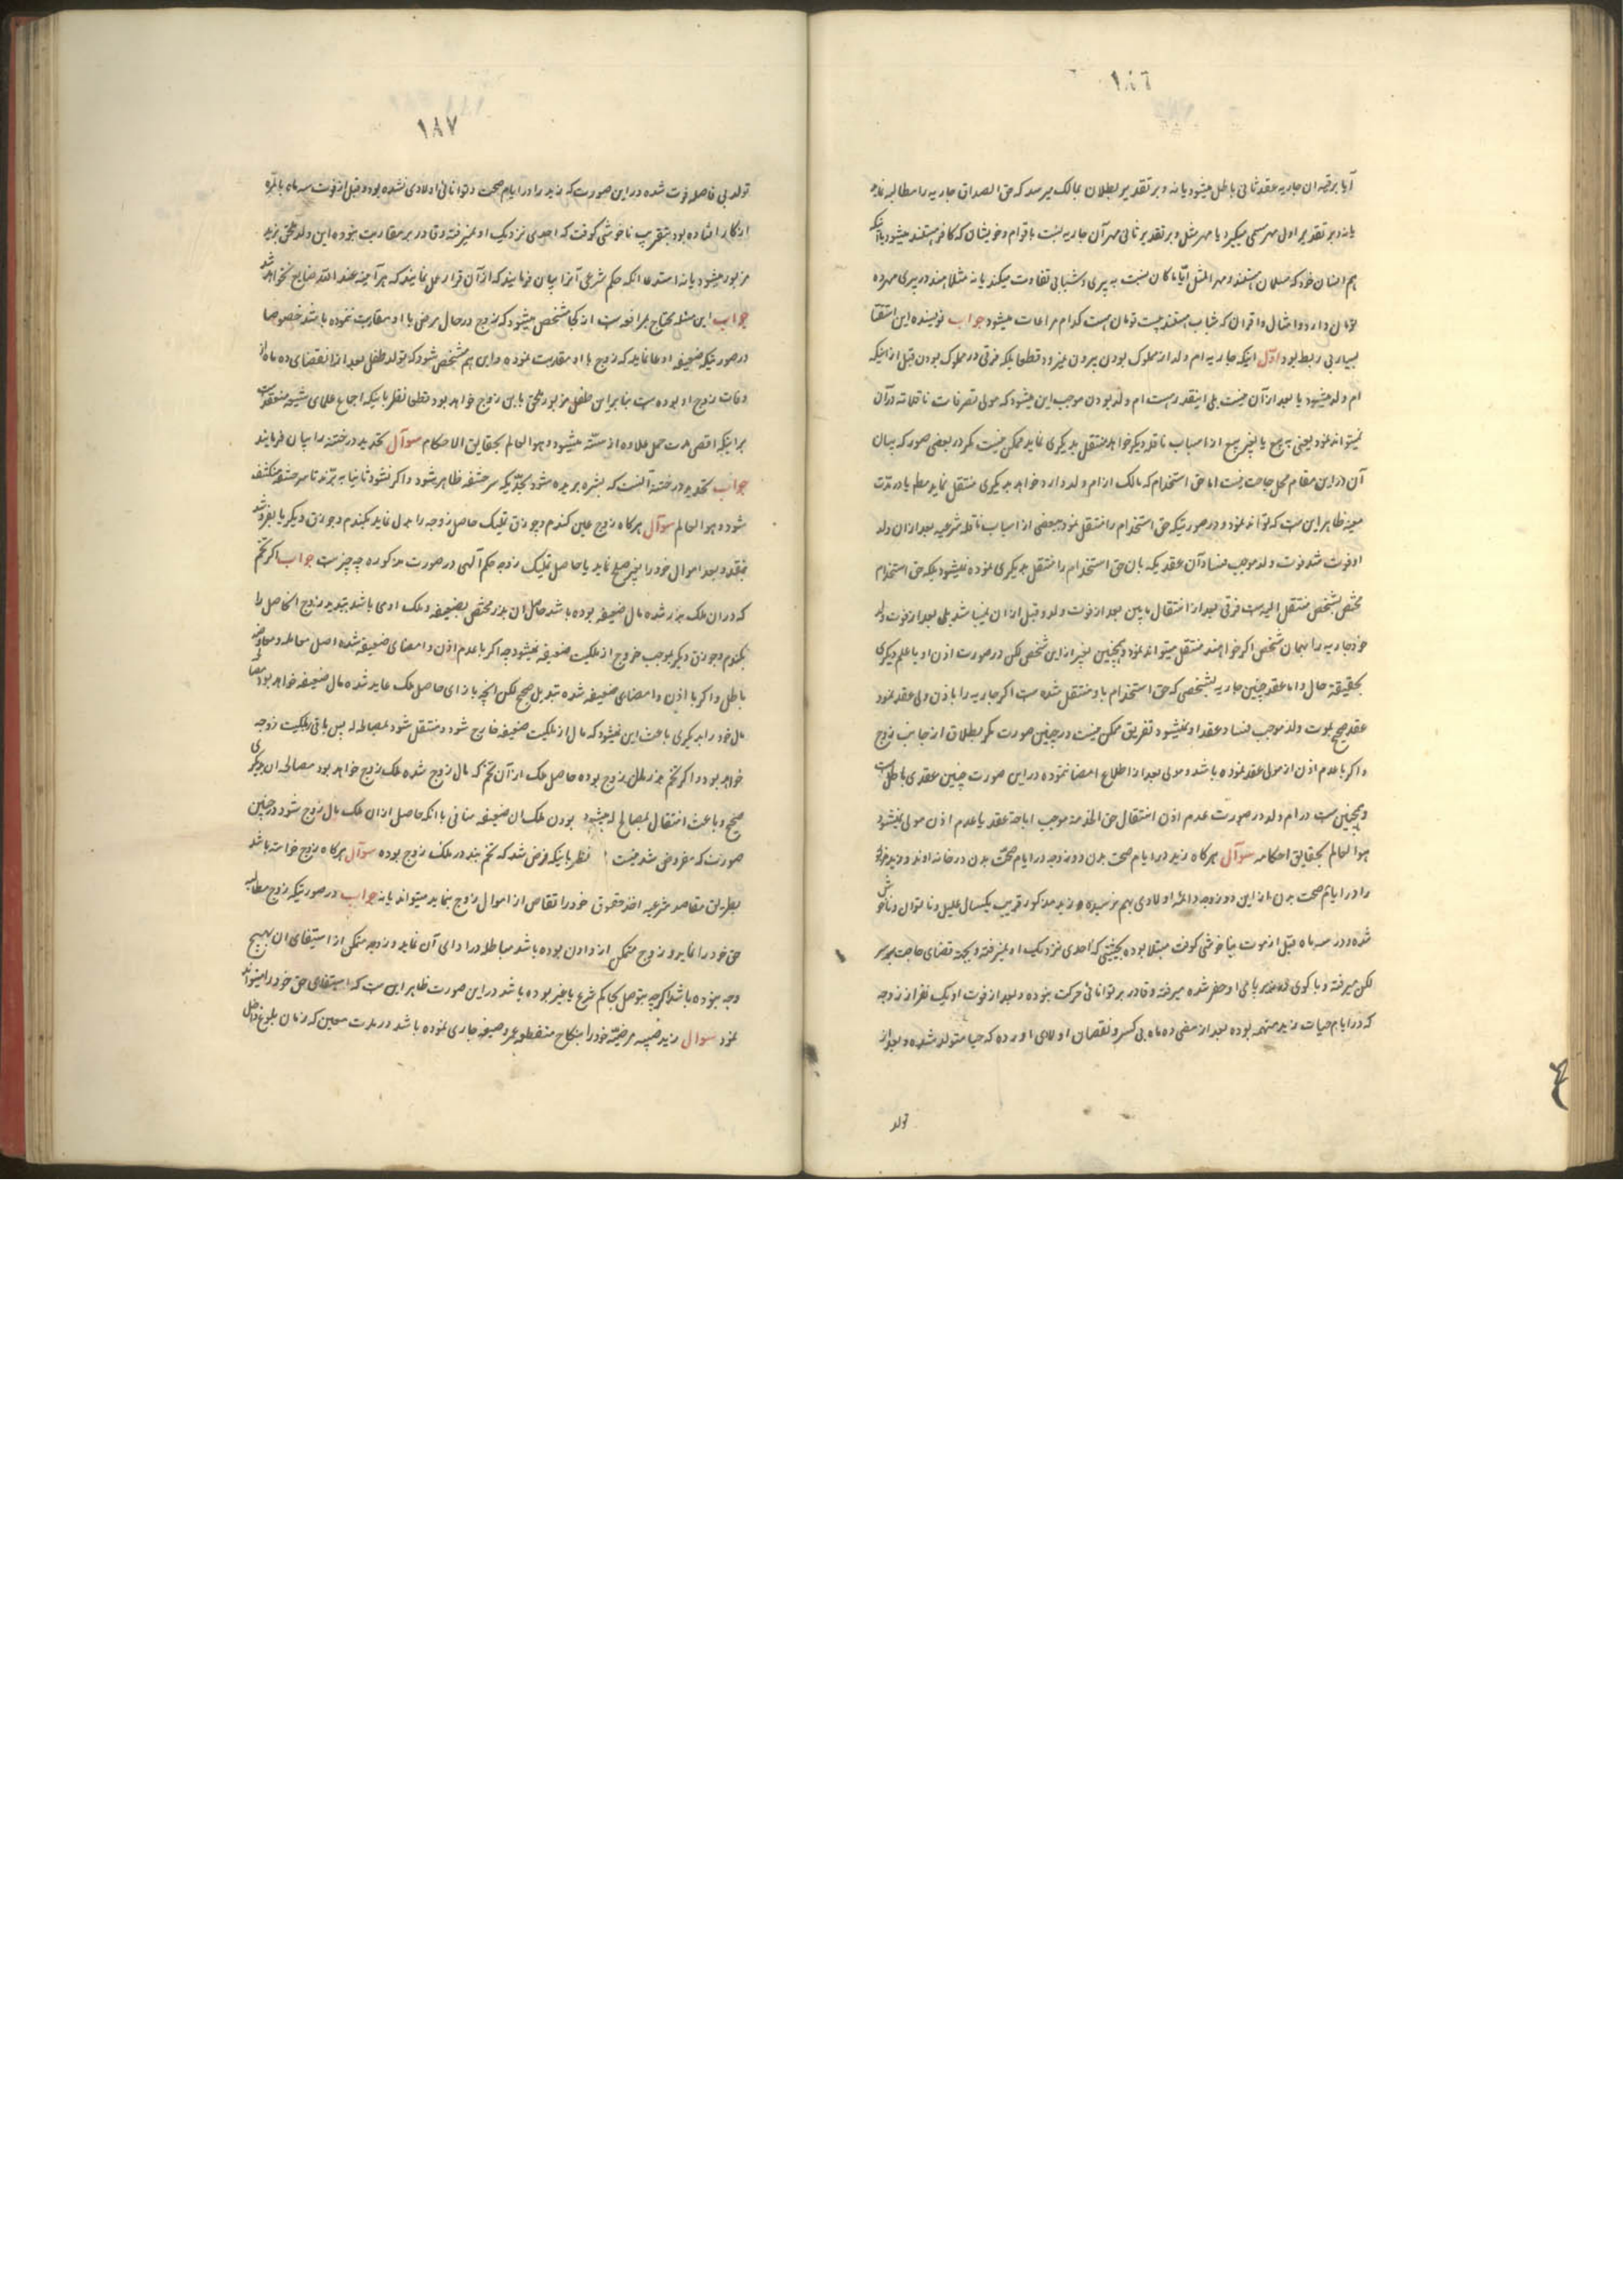 ١٨٦
آیا برقیه ان جاریه عقد ثانی باطل میشود یا نه و بر تقدیر بطلان بمالک میرسد که حق الصداق جاریه را مطالبه نماید
یا نه و بر تقدیر اول مهر مسمی میگیرد یا مهر مثل و بر تقدیر ثانی مهر آن جاریه نسبت باقوام و خویشان که کافر هستند میشود یا اینکه
هم دینان خود که مسلمان هستند و مهر المثل ایّا ما کان نسبت به پیری و شبابی تفاوت میکند یا نه مثلا هند در پیری مهر ده
تومان دارد و امثال و اقران که شباب هستند بیست تومان هست کدام مراعات میشود جواب نویسنده این استفتا
بسیار بی ربط بود اوّل اینکه جاریه ام ولد از مملوک بودن بیرون نمیرود قطعا بلکه فرقی در مملوک بودن قبل از اینکه
ام ولد میشود یا بعد از آن نیست بلی اینقدر هست ام ولد بودن موجب این میشود که مولی تصرفات ناقلانه در آن
نمیتواند نمود یعنی به بیع یا بغیر بیع از اسباب ناقله دیگر خواهد منتقل بدیگری نماید ممکن نیست مگر در بعضی صور که بیان
آن در این مقام محل حاجت نیست اما حق استخدام که مالک از ام ولد دارد خواهد بدیگری منتقل نماید مطلقا یا در مدت
معینه ظاهر این است که تواند نمود و در صورتیکه حق استخدام را منتقل نمود ببعضی از اسباب ناقله شرعیه بعد از ان ولد
او فوت شد فوت ولد موجب فساد آن عقدیکه بان حق استخدام را منتقل بدیگری نموده نمیشود بلکه حق استخدام
مختص بشخص منتقل الیه است فرقی بعد از انتقال ما بین بعد از فوت ولد و قبل از ان نمیباشد بلی بعد از فوت ولد
خود جاریه را بهمان شخص اگر خواهند منتقل میتواند نمود و همچنین بغیر از این شخص لکن در صورت اذن او یا علم دیگری
بحقیقة حال و اما عقد چنین جاریه بشخصی که حق استخدام باو منتقل شده است اگر جاریه را باذن ولی عقد نمود
عقد صحیح بموت ولد موجب فساد عقد او نمیشود تفریق ممکن نیست در چنین صورت مگر بطلاق از جانب زوج
و اگر با عدم اذن از مولی عقد نموده باشد و مولی بعد از اطلاع امضا ننموده در این صورت چنین عقدی باطل است
و همچنین ست در ام ولد در صورت عدم اذن انتقال حق الخدمة موجب اباحة عقد با عدم اذن مولی نمیشود
هو العالم بحقایق احکامه سوآل هرگاه زید در ایام صحت بدن دو زوجه در ایام صحّت بدن در خانه او ند و زید مزبور
را در ایام صحت بدن از این دو زوجه دائمه اولادی بهم نرسیده و زید مذکور قریب یکسال علیل و ناتوان و ناخوش
شده و در سه ماه قبل از موت بناخوشی کوفت مبتلا بوده بحیثیتی که احدی نزدیک او نمیرفته و بجهة قضای حاجت بر سر
لکن میرفته و با گوی قد میر پا می او حفر شده میرفته و قادر بر توانائی حرکت نبوده و بعد از فوت او یک نفر از زوجه
که در ایام حیات زید متهمه بوده بعد از مضی ده ماه بی کسر و نقصان اولادی اورده که حیا متولد شده و بعد از
تولد
١٨٧
تولد بی فاصله فوت شده در این صورت که زید را در ایام صحت و توانائی اولادی نشده بود و قبل از فوت سه ماه بالمره
از کار افتاده بود بتقریب ناخوشی کوفت که احدی نزدیک او نمیرفته و قادر بر مقاربت نبوده این ولد ملحق بزید
مزبور میشود یا نه استدعا انکه حکم شرعی آنرا بیان فرمایند که از آن قرار عمل نمایند که هر آینه عند الله ضایع نخواهد شد
جواب این مسئله محتاج بمرافعه است از کجا مشخص میشود که زوج در حال مرض با او مقاربت ننموده باشد خصوصا
در صورتیکه ضعیفه ادعا نماید که زوج با او مقاربت نموده و این هم مشخص شود که تولد طفل بعد از انقضای ده ماه از
وفات زوج او بوده ست بنا بر این طفل مزبور ملحق باین زوج خواهد بود قطعا نظر باینکه اجماع علمای شیعه منعقد است
بر اینکه اقصی مدت حمل علاوه از سنّه میشود و هو العالم بحقایق الاحکام سوآل تحدید در ختنه را بیان فرمایند
جواب تحدید در ختنه آنست که بشره بریده شود بحدّیکه سر حشفه ظاهر شود و اگر نشود ثانیا به برّند تا سر حشفه منکشف
شود و هو العالم سوآل هرگاه زوج عین گندم و جوزق تملیک حاصل زوجه را بدل نماید بگندم و جوزق دیگر یا بفروشد
بنقد و بعد اموال خود را بغیر صلح نماید با حاصل تملیک زوجه حکم آلهی در صورت مذکوره چه چیز است جواب اگر تخم
که در ان ملک بذر شده مال ضعیفه بوده باشد حاصل ان بذر مختص بضعیفه و ملک او می باشد تبدیل زوج انحاصل را
بگندم و جوزق دیگر موجب خروج از ملکیت ضعیفه نمیشود چه اگر با عدم اذن و امضای ضعیفه شده اصل معامله و معاوضه
باطل و اگر با اذن و امضای ضعیفه شده تبدیل صحیح لکن انچه بازای حاصل ملک عاید شده مال ضعیفه خواهد بود
مال خود را بدیگری باعث این نمیشود که مال از ملکیت ضعیفه خارج شود و منتقل شود بمصالح له پس باقی بملکیت زوجه
خواهد بود و اگر تخم بذر مال زوج بوده حاصل ملک از آن تخم که مال زوج شده ملک زوج خواهد بود مصالحه ان بدیگری
صحیح و باعث انتقال بمصالح له میشود بودن ملک ان ضعیفه منافی با انکه حاصل از ان ملک مال زوج شود در چنین
صورت که مفروض شد نیست نظر باینکه فرض شد که تخم بذر در ملک زوج بوده سوآل هرگاه زوج خواسته باشد
بطریق مقاصه شرعیه اخذ حقوق خود را تقاص از اموال زوج بنماید میتواند یا نه جواب در صورتیکه زوج مطالبه
حق خود را نماید و زوج متمکن از دادن بوده باشد مماطله در ادای آن نماید و زوجه متمکن از استیفای ان بهیچ
وجه نبوده باشد اگرچه بتوصل بحاکم شرع یا غیر بوده باشد در این صورت ظاهر این ست که استیفای حق خود را میتواند
نمود سوال زید صبیه مرضیّه خود را بنکاح منقطعه عمرو صیغه جاری نموده باشد در مدت معین که زمان بلوغ داخل